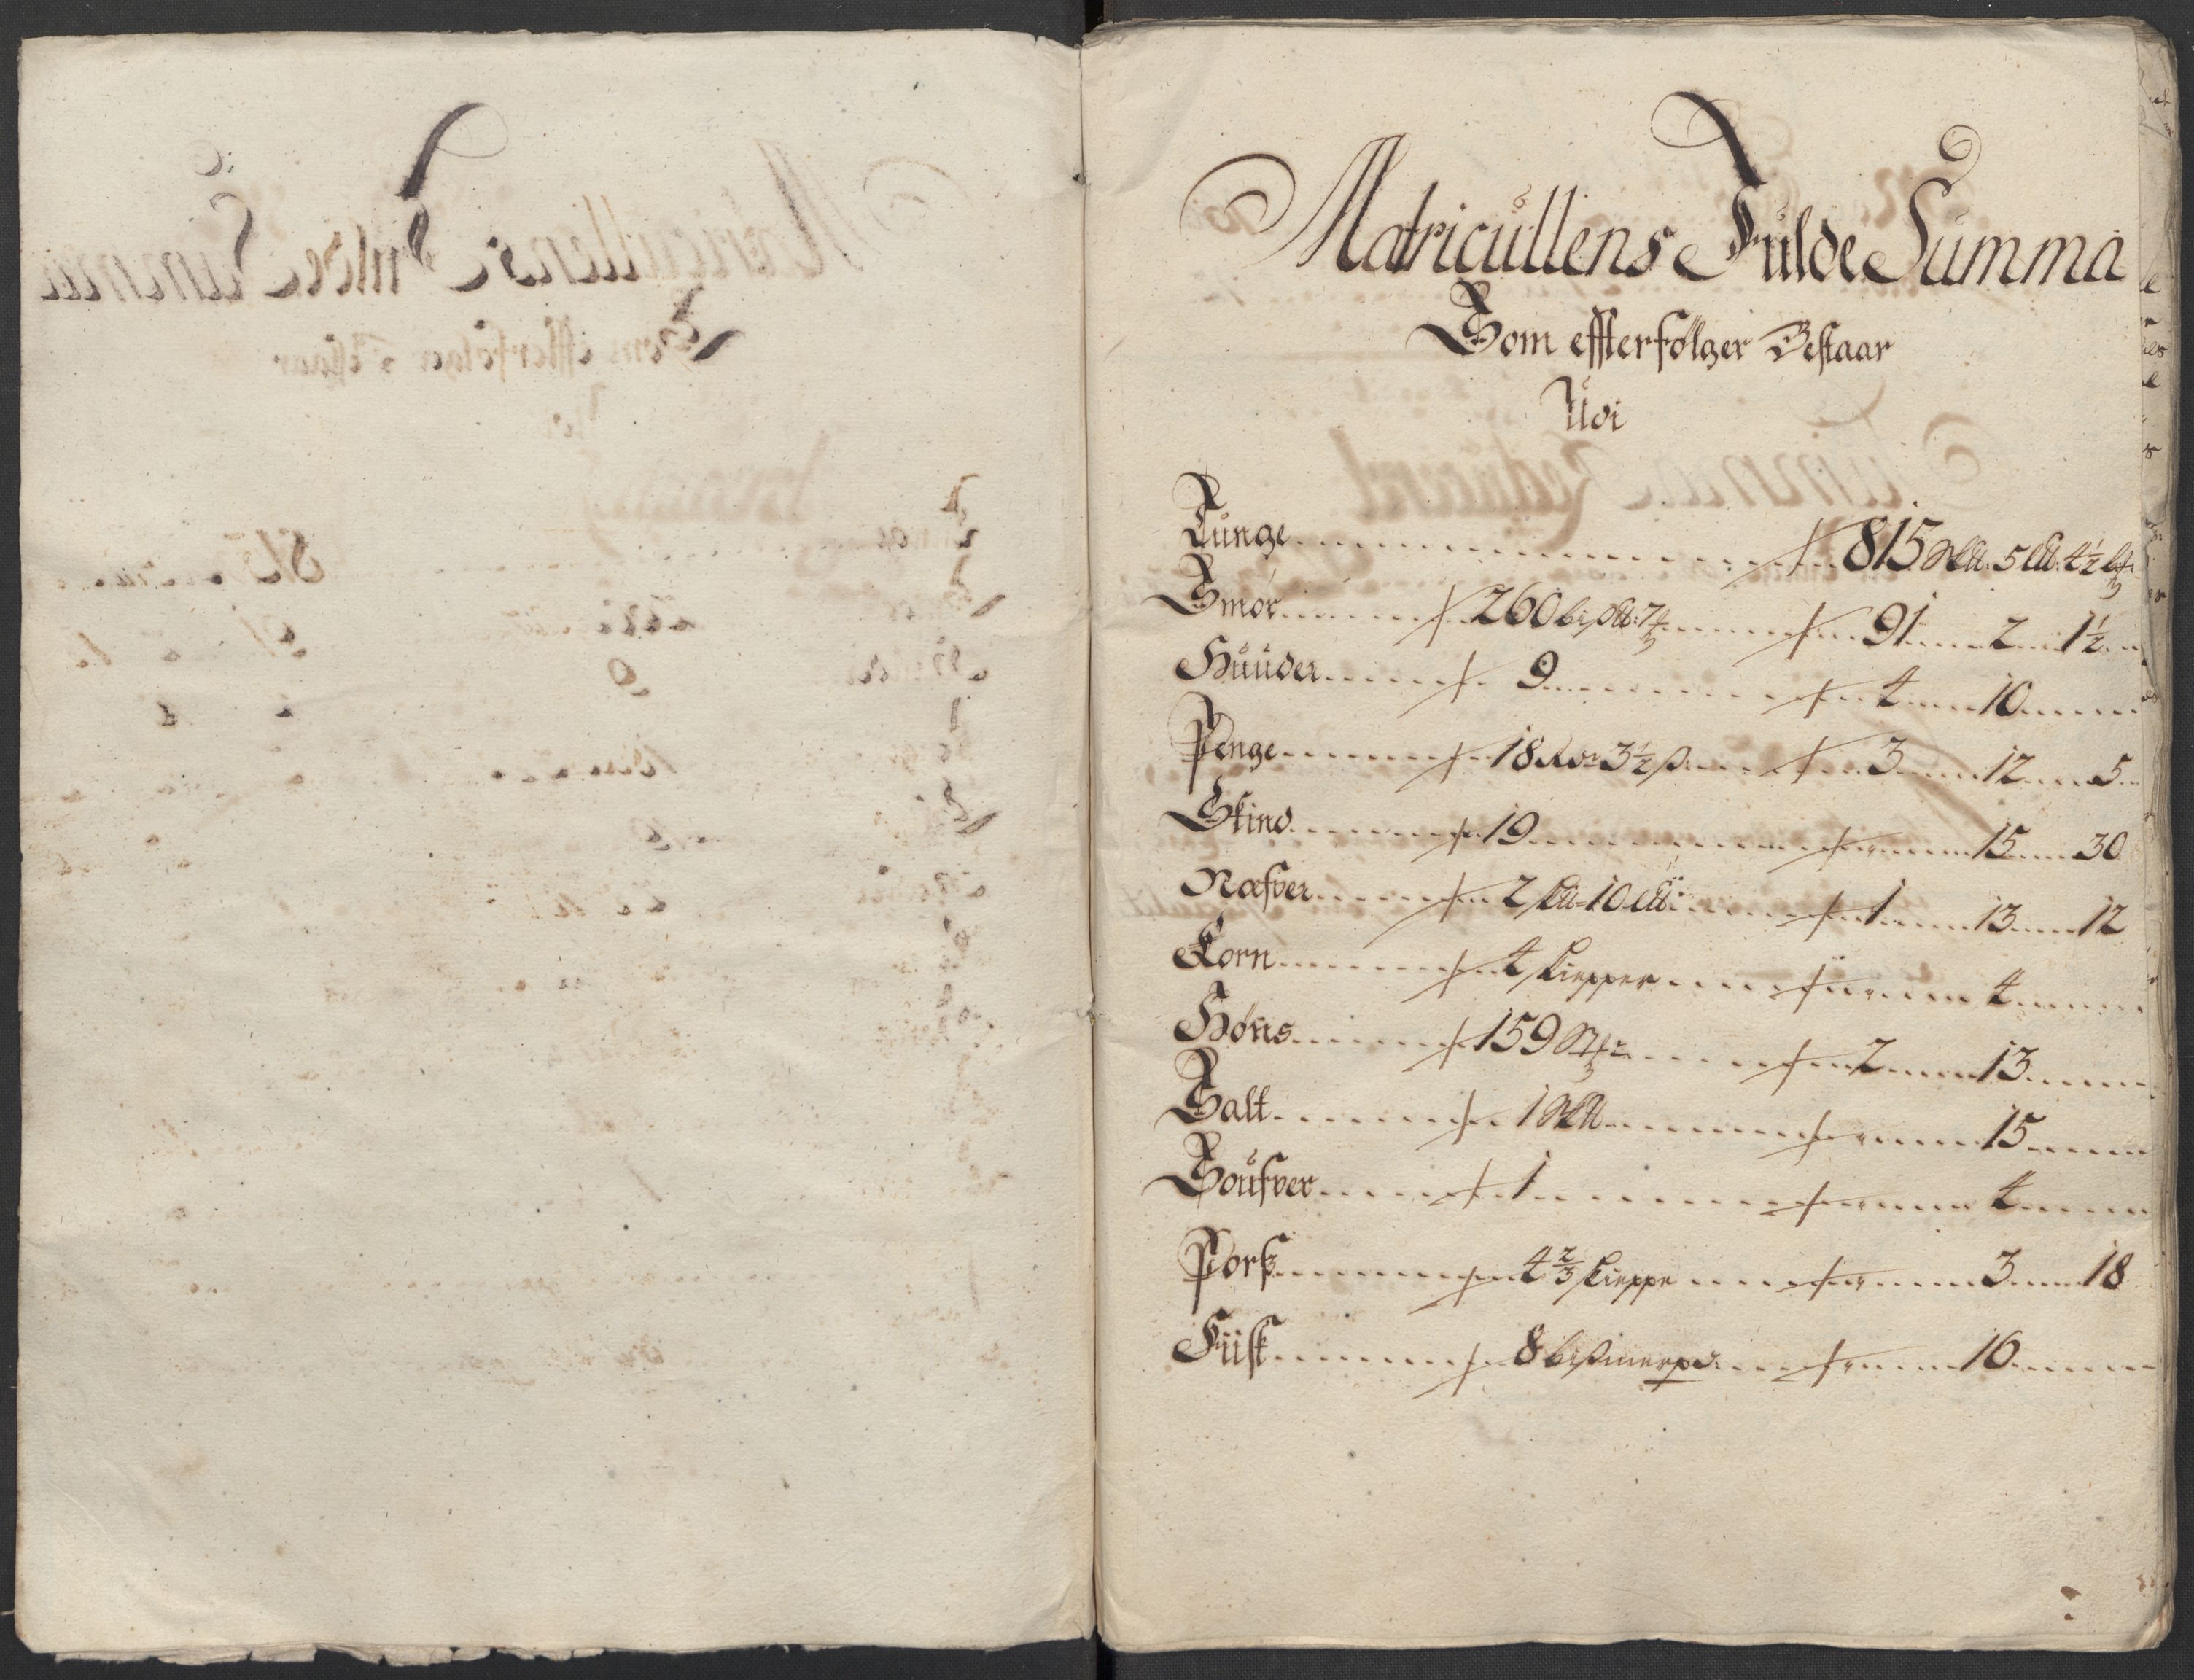 Matricullens Fulde Summa
Som effterfølger Bestaar
Udi
Tunge 815 5 4½
Smør 260 91 2 1½
Huuder 9 4 10
Penge 18 3½ ß 3 12 5
Skind 19 15 30
Næfver 2 10 1 13 12
Korn 4 kiepper 4
Høns 159 2 13
Salt 1 15
Soufver 1 4
Pors 4⅔ kieppe 3 18
Fiisk 8 bismerpd 16